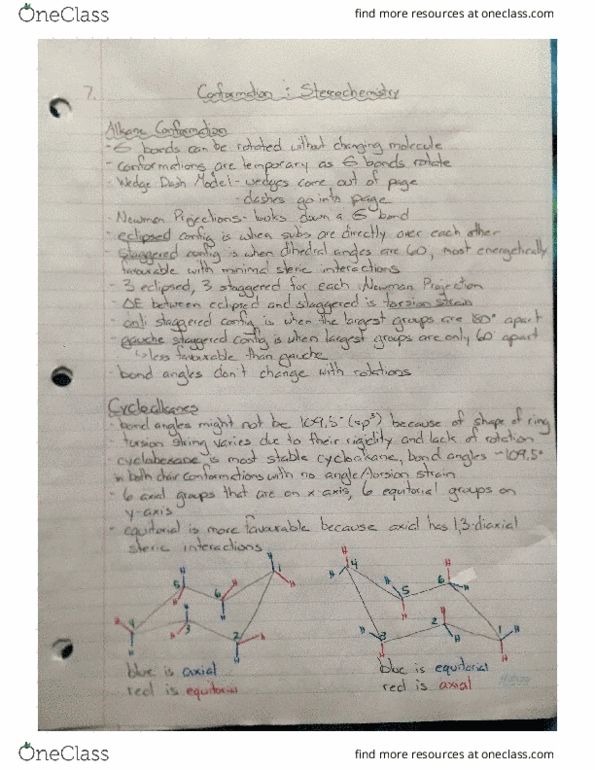 OneClass
find more resources at oneclass.com
7.
Conformation : Stereochemistry
Alkane Conformation
- 6 bonds can be rotated without changing molecule
- conformations are temporary as 6 bonds rotate
- Wedge Dash Model - wedges come out of page
- dashes go into page
Newman Projections - looks down a 6 bond
- eclipsed config is when subs are directly over each other
- staggered config is when dihedral angles are 60, most energetically
favourable with minimal steric interactions
- 3 eclipsed, 3 staggered for each Newman Projection
- ΔE between eclipsed and staggered is torsion strain
- anti staggered config is when the largest groups are 180° apart
- gauche staggered config is when largest groups are only 60° apart
↳ less favourable than gauche
- bond angles don't change with rotations
Cycloalkanes
- bond angles might not be 109.5° (sp³) because of shape of ring
torsion string varies due to their rigidity and lack of rotation
- cyclohexane is most stable cycloalkane, bond angles ~109.5°
in both chair conformations with no angle/torsion strain
- 6 axial groups that are on x axis, 6 equitorial groups on
y-axis
- equitorial is more favourable because axial has 1,3-diaxial
steric interactions
H H H H H H H H H H H H
1 2 3 4 5 6
H H H H H H H H H H H
1 2 3 4 5 6
blue is axial
red is equitorial
blue is equitorial
red is axial
OneClass
find more resources at oneclass.com